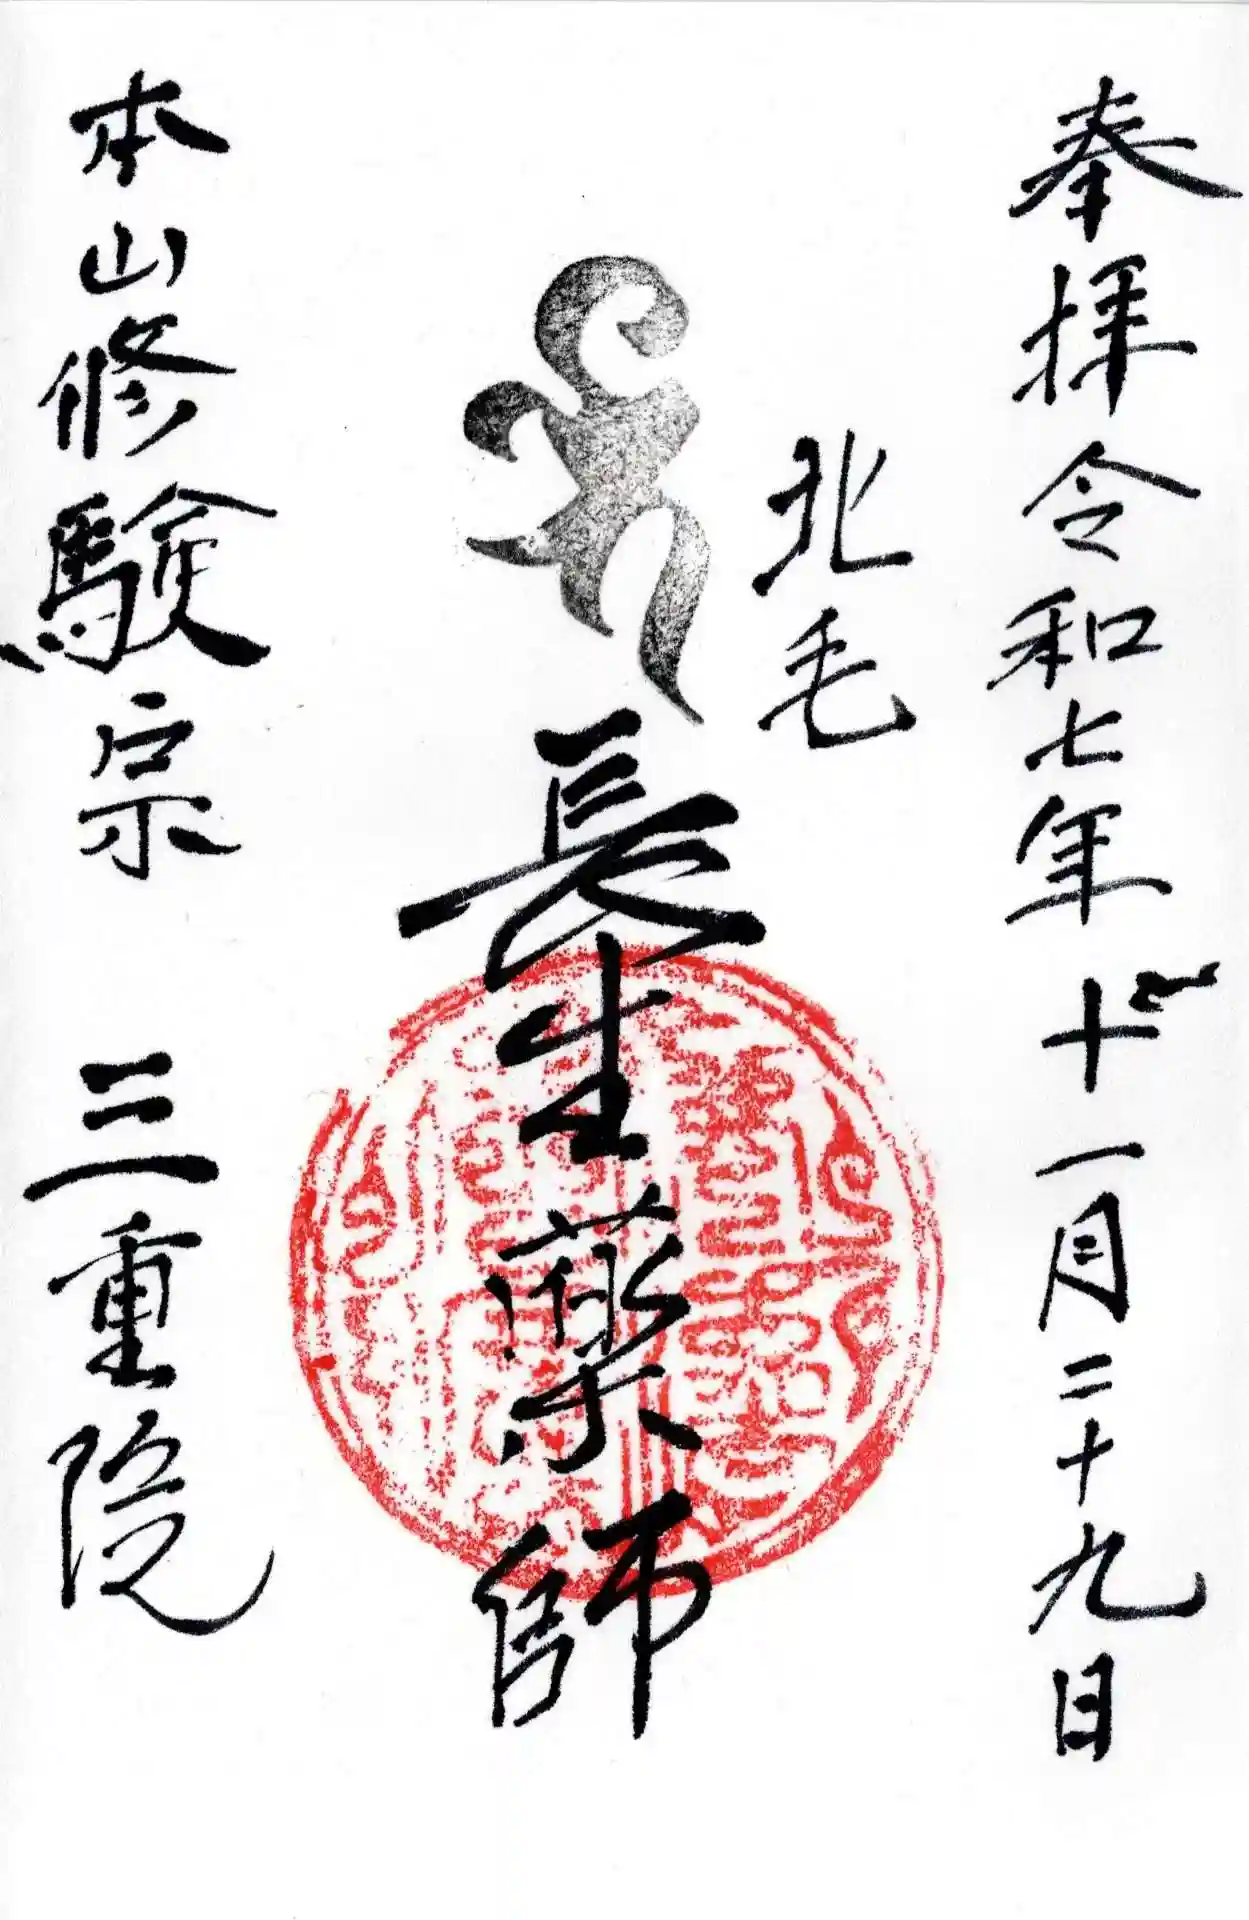 奉拝令和七年十一月二十九日
北毛
長生薬師
本山修驗宗 三重院